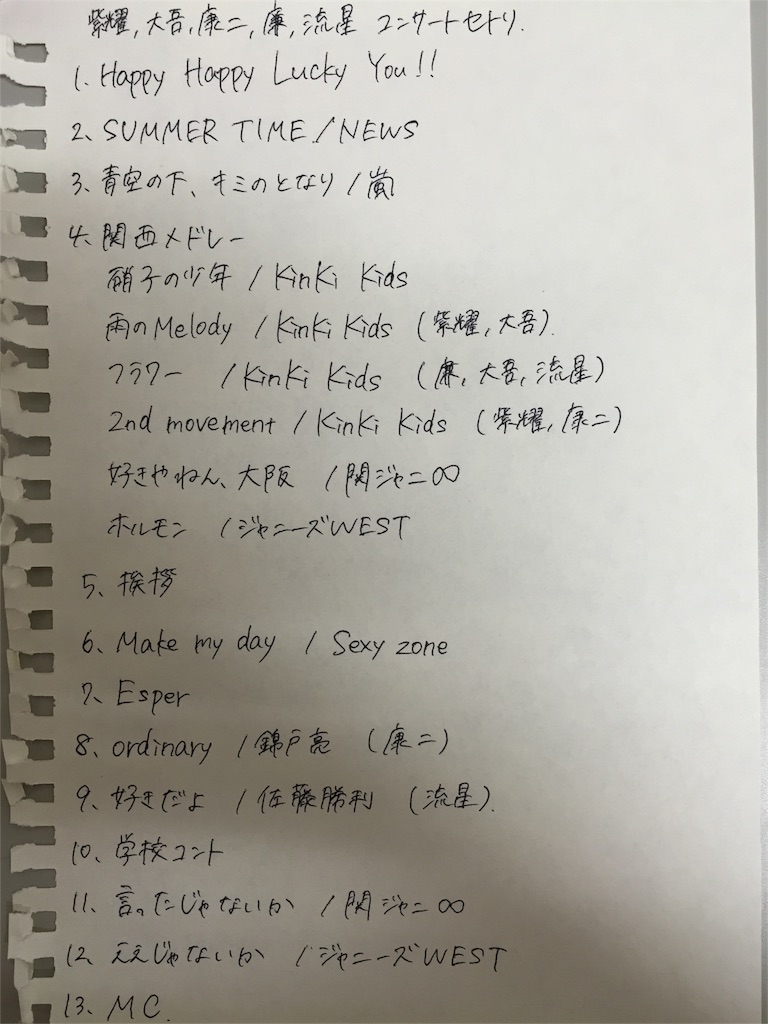 紫耀,大吾,康二,廉,流星 コンサートセトリ.
1. Happy Happy Lucky You!!
2、SUMMER TIME/NEWS
3、青空の下、キミのとなり/嵐
4、関西メドレー
硝子の少年 / KinKi Kids
雨のMelody / KinKi Kids (紫耀,大吾).
フラワー / KinKi Kids (廉,大吾,流星)
2nd movement / KinKi Kids (紫耀,康二)
好きやねん、大阪 / 関ジャニ∞
ホルモン / ジャニーズWEST
5、挨拶
6、Make my day / Sexy zone
7、Esper
8、ordinary / 錦戸亮 (康二)
9、好きだよ / 佐藤勝利 (流星).
10、学校コント
11、言ったじゃないか / 関ジャニ∞
12、ええじゃないか / ジャニーズWEST
13、MC.